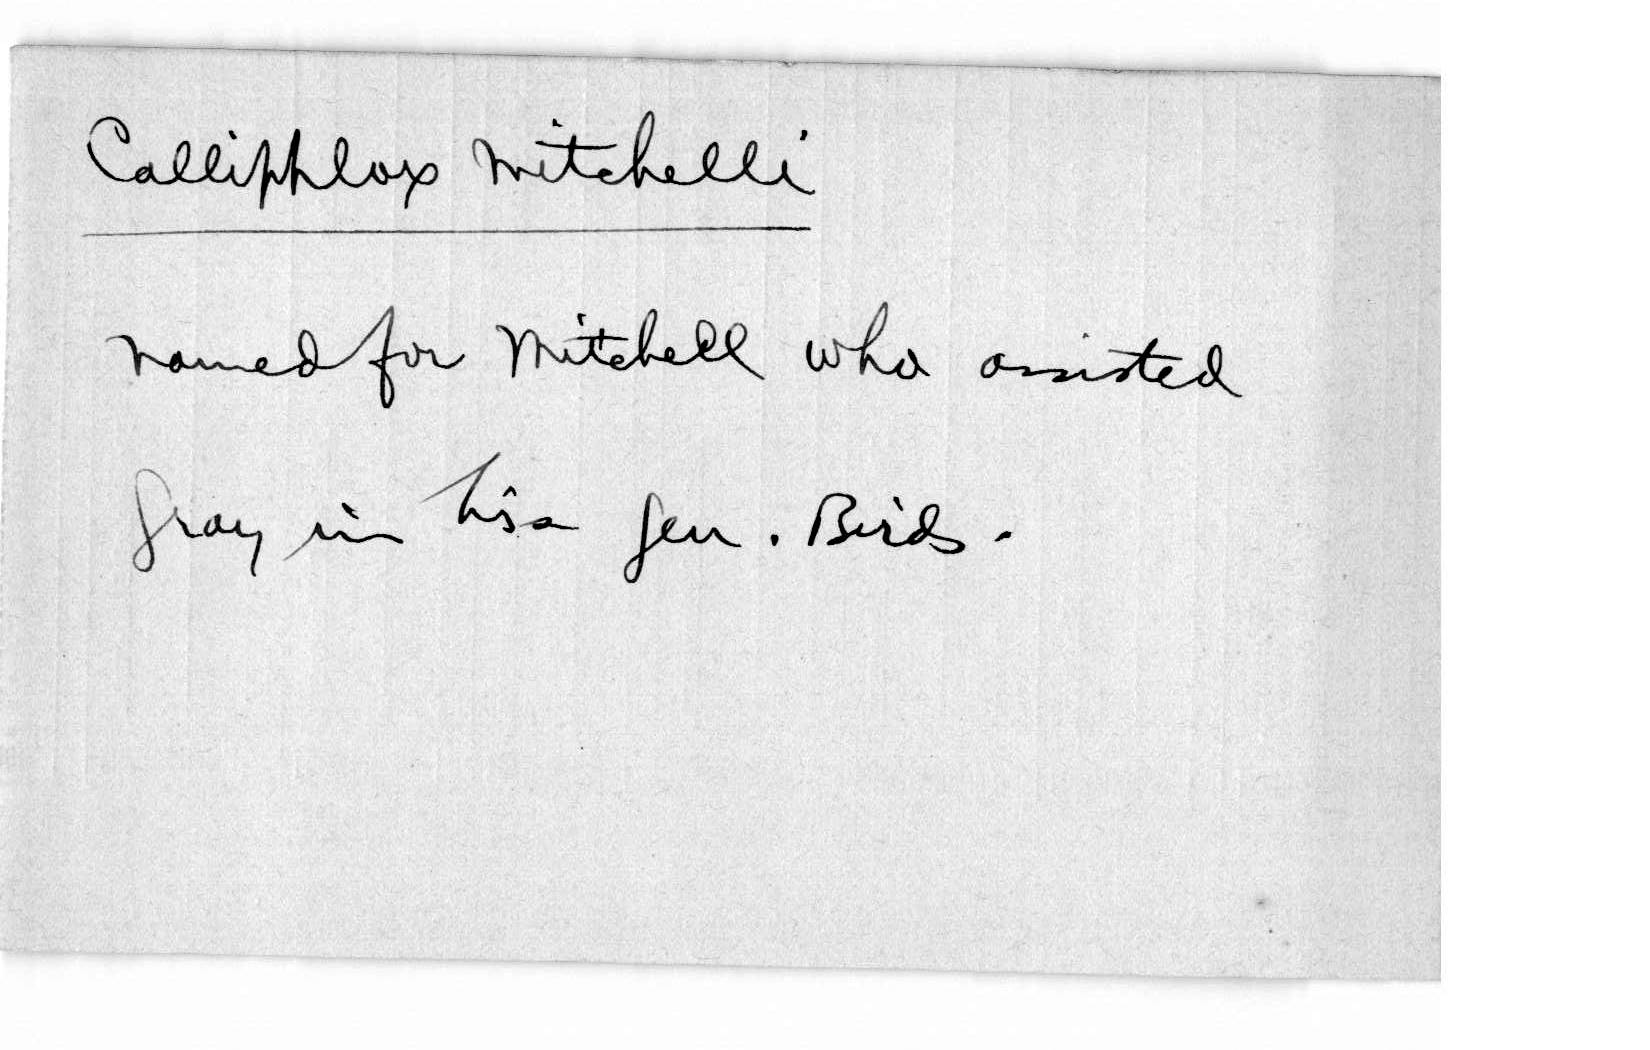 Calliphlox Mitchelli
named for Mitchell who assisted
Gray in his Gen. Birds.